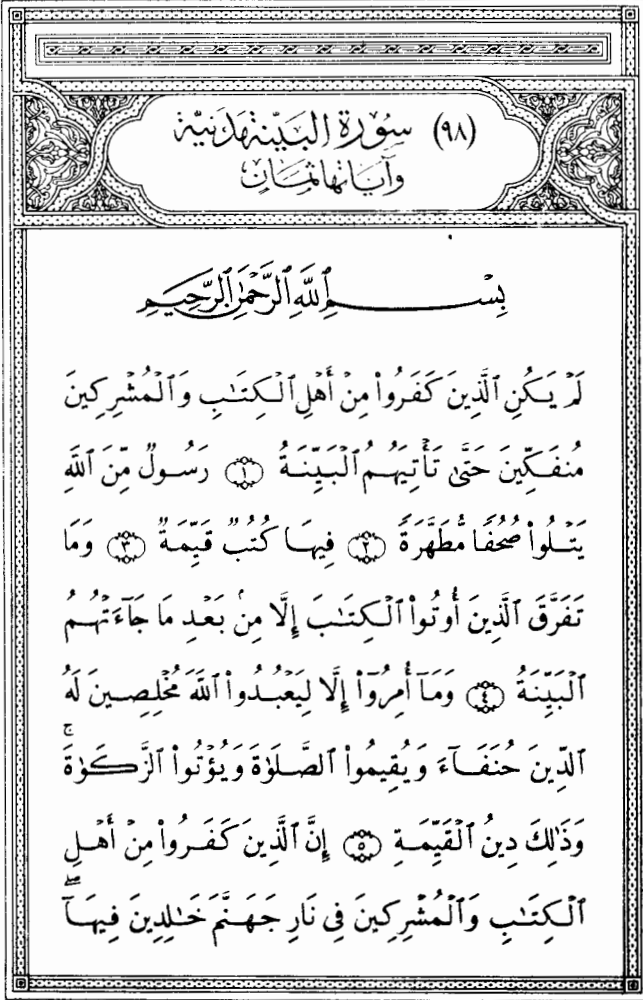 (٩٨) سُورَةُ البَيِّنَةِ مَدَنِيَّة
وَآيَاتُهَا ثَمَانٍ
بِسْمِ ٱللَّهِ ٱلرَّحْمَٰنِ ٱلرَّحِيمِ
لَمْ يَكُنِ ٱلَّذِينَ كَفَرُوا۟ مِنْ أَهْلِ ٱلْكِتَٰبِ وَٱلْمُشْرِكِينَ
مُنفَكِّينَ حَتَّىٰ تَأْتِيَهُمُ ٱلْبَيِّنَةُ ﴿١﴾ رَسُولٌ مِّنَ ٱللَّهِ
يَتْلُوا۟ صُحُفًا مُّطَهَّرَةً ﴿٢﴾ فِيهَا كُتُبٌ قَيِّمَةٌ ﴿٣﴾ وَمَا
تَفَرَّقَ ٱلَّذِينَ أُوتُوا۟ ٱلْكِتَٰبَ إِلَّا مِنۢ بَعْدِ مَا جَآءَتْهُمُ
ٱلْبَيِّنَةُ ﴿٤﴾ وَمَآ أُمِرُوٓا۟ إِلَّا لِيَعْبُدُوا۟ ٱللَّهَ مُخْلِصِينَ لَهُ
ٱلدِّينَ حُنَفَآءَ وَيُقِيمُوا۟ ٱلصَّلَوٰةَ وَيُؤْتُوا۟ ٱلزَّكَوٰةَ ۚ
وَذَٰلِكَ دِينُ ٱلْقَيِّمَةِ ﴿٥﴾ إِنَّ ٱلَّذِينَ كَفَرُوا۟ مِنْ أَهْلِ
ٱلْكِتَٰبِ وَٱلْمُشْرِكِينَ فِى نَارِ جَهَنَّمَ خَٰلِدِينَ فِيهَآ ۖ